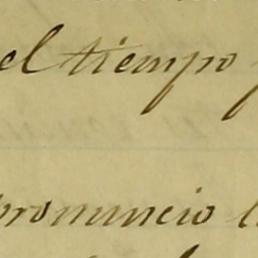 el tiempo
pronuncio